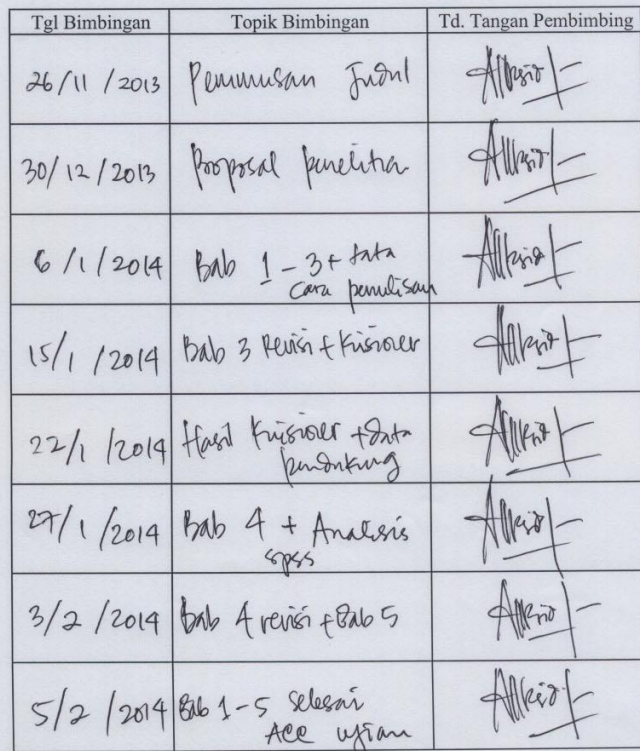 Tgl Bimbingan Topik Bimbingan Td. Tangan Pembimbing
26/11/2013 Perumusan Judul
30/12/2013 Proposal penelitian
6/1/2014 Bab 1-3 + tata
cara penulisan
15/1/2014 Bab 3 Revisi + Kuisioner
22/1/2014 Hasil Kuisioner + data
pendukung
27/1/2014 Bab 4 + Analisis
spss
3/2/2014 Bab 4 revisi + Bab 5
5/2/2014 Bab 1-5 selesai
Acc ujian